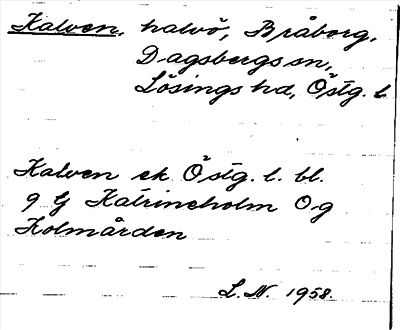 Kalven, halvö, Bråborg,
Dagsbergs sn,
Lösings hd, Östg. l.
Kalven ek Östg. l. bl.
9 G Katrineholm OG
Kolmården
L. N. 1958.